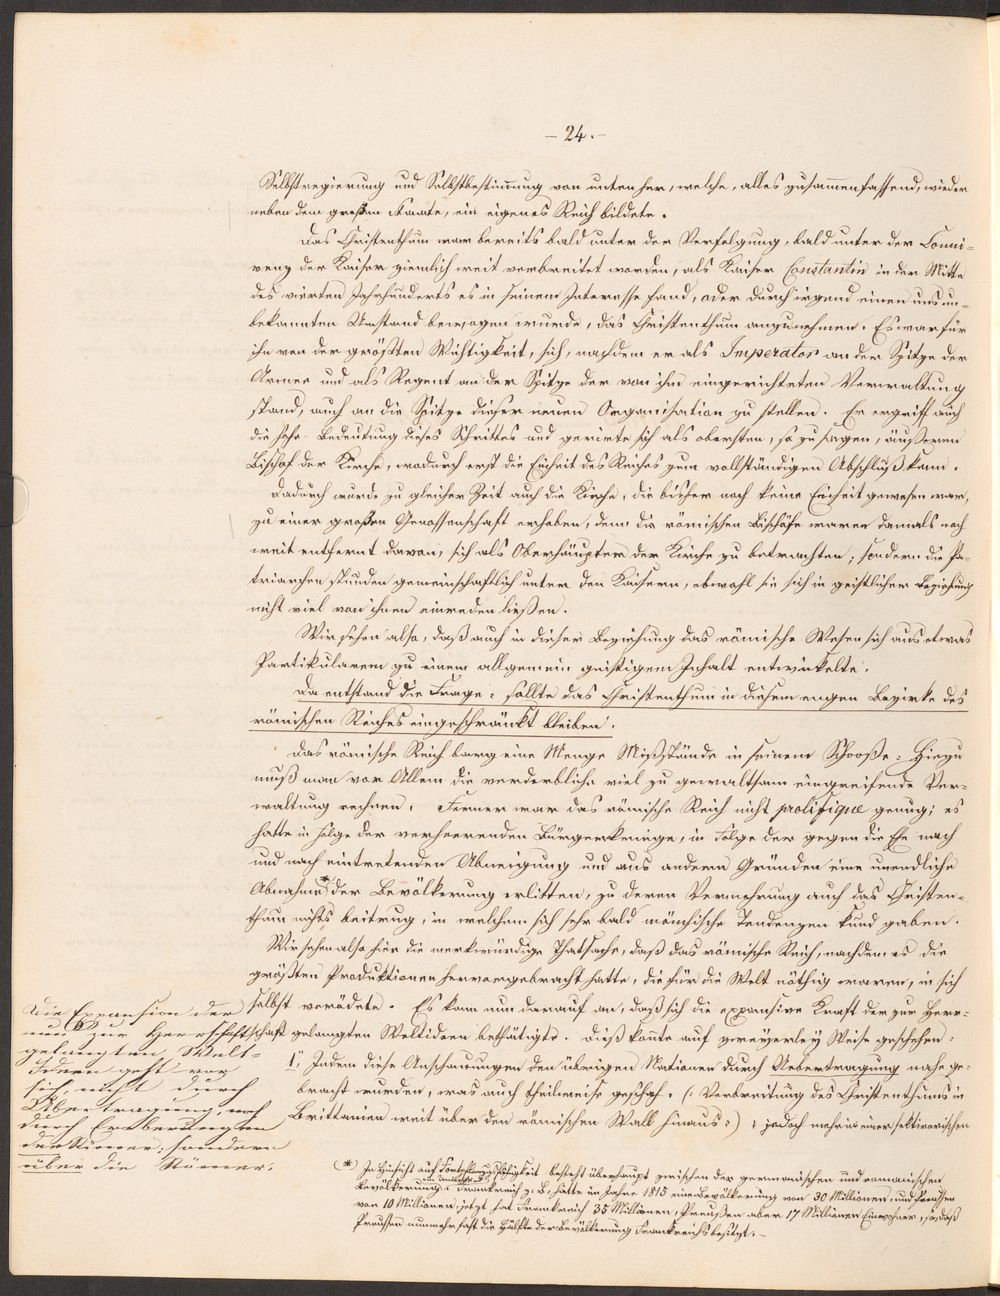 – 24. –
Selbstregierung und Selbstbestimmung von unten her, welche, alles zusammenfassend, wieder
neben dem großen Staate, ein eigenes Reich bildete.
Das Christenthum war bereits bald unter der Verfolgung, bald unter der Conni=
venz der Kaiser ziemlich weit verbreitet worden, als Kaiser Constantin in der Mitte
des vierten Jahrhunderts es in seinem Interesse fand, oder durch irgend einen uns un=
bekannten Umstand bewogen wurde, das Christenthum anzunehmen. Es war für
ihn von der größten Wichtigkeit, sich, nachdem er als Imperator an der Spitze der
Armee und als Regent an der Spitze der von ihm eingerichteten Verwaltung
stand, auch an die Spitze dieser neuen Organisation zu stellen. Er ergriff auch
die hohe Bedeutung dieses Schrittes und gerirte sich als obersten, so zu sagen, äußeren
Bischof der Kirche, wodurch erst die Einheit des Reiches zum vollständigen Abschluß kam.
Dadurch wurde zu gleicher Zeit auch die Kirche, die bisher noch keine Einheit gewesen war,
zu einer großen Genossenschaft erhoben, denn die römischen Bischöfe waren damals noch
weit entfernt davon, sich als Oberhäupter der Kirche zu betrachten; sondern die Pa=
triarchen stunden gemeinschaftlich unter den Kaisern, obwohl sie sich in geistlicher Beziehung
nicht viel von ihnen einreden ließen.
Wir sehen also, daß auch in dieser Beziehung das römische Wesen sich aus etwas
Partikularem zu einem allgemein geistigem Inhalt entwickelte.
Da entstand die Frage: sollte das Christenthum in diesem engen Bezirke des
römischen Reiches eingeschränkt bleiben.
Das römische Reich barg eine Menge Mißstände in seinem Schooße: Hiezu
muß man vor Allem die verderbliche viel zu gewaltsam eingreifende Ver=
waltung rechnen. Ferner war das römische Reich nicht prolifique genug; es
hatte in Folge der verheerenden Bürgerkriege, in Folge der gegen die Ehe nach
und nach eintretenden Abneigung und aus andern Gründen eine unendliche
Abnahme * der Bevölkerung erlitten, zu deren Vermehrung auch das Christen=
thum nichts beitrug, in welchem sich sehr bald mönchische Tendenzen kund gaben.
Wir sehen also hier die merkwürdige Thatsache, daß das römische Reich, nachdem es die
größten Produktionen hervorgebracht hatte, die für die Welt nöthig waren, in sich
selbst verödete. Es kam nun darauf an, daß sich die expansive Kraft der zur Herr=
schaft gelangten Weltideen bethätigte. Dieß konnte auf zweyerley Weise geschehen:
1., Indem diese Anschauungen den übrigen Nationen durch Uebertragung nahe ge=
bracht wurden, was auch theilweise geschah. (: Verbreitung des Christenthums in
Brittanien weit über den römischen Wall hinaus:) ; jedoch mehr in einer sektirerischen
Die Expansion der
nun zur Herrschaft
gelangten Welt=
Ideen geht vor
sich, nicht durch
Übertragung, noch
durch Eroberungen
der Römer: sondern
über die Römer.
(*) In Hinsicht auf Fortpflanzungsfähigkeit besteht überhaupt zwischen der germanischen und romanischen
Bevölkerung ein Unterschied: Frankreich z. B. hatte im Jahre 1815 eine Bevölkerung von 30 Millionen, und Preussen
von 10 Millionen; jetzt hat Frankreich 35 Millionen, Preußen aber 17 Millionen Einwohner, so daß
Preussen nunmehr fast die Hälfte der Bevölkerung Frankreichs besitzt. –